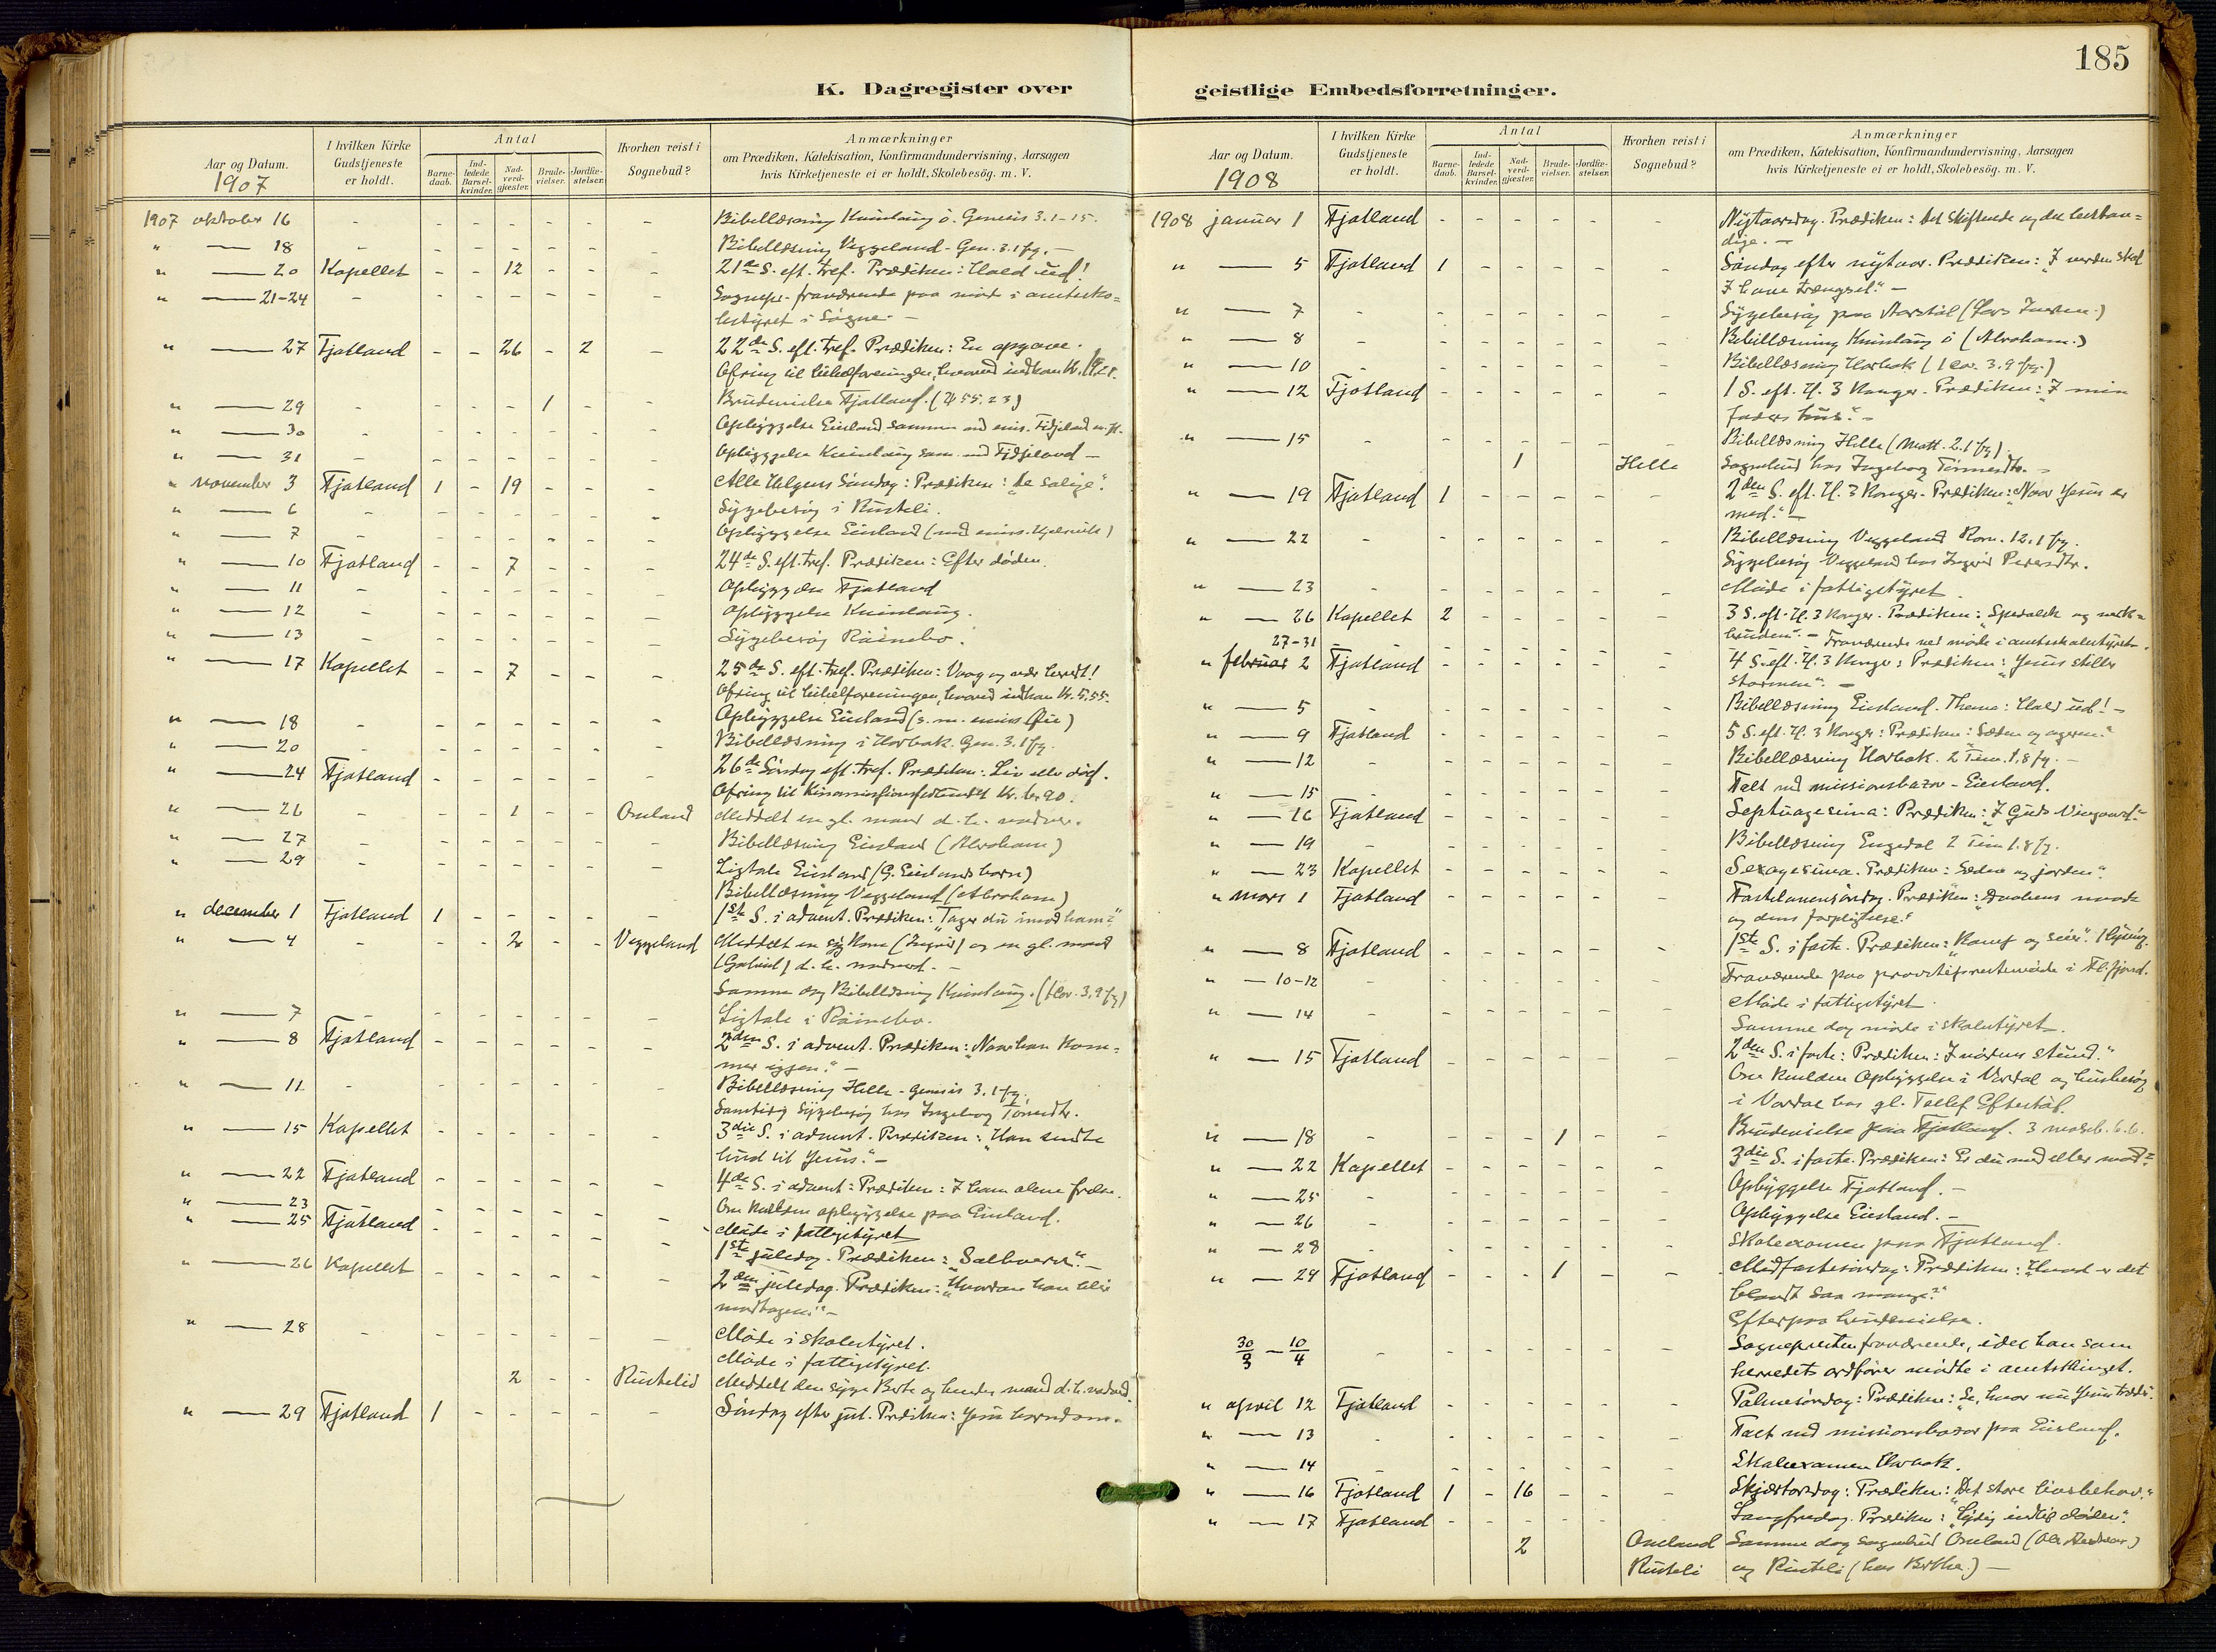 185
K. Dagregister over geistlige Embedsforretninger.
Aar og Datum. 1907
I hvilken Kirke Gudstjeneste er holdt.
Antal
Barnedaab.
Indledede Barselkvinder.
Nadverdgjæster.
Brudevielser.
Jordfæstelser.
Hvorhen reist i Sognebud?
Anmærkninger
om Prædiken, Katekisation, Konfirmandundervisning, Aarsagen
hvis Kirketjeneste ei er holdt, Skolebesög. m. V.
1907 oktober 16 - - - - - - - Bibellæsning Kvinlaug ö. Genesis 3.1-15.
" — 18 - - - - - - - Bibellæsning Veggeland - Gen. 3.1 fg. —
" — 20 Kapellet - - 12 - - - 21de S. eft. tref. Prædiken: Hald ud!
" — 21-24 - - - - - - - Sognepr. fraværende paa möde i amtssko=
lestyret i Sögne. —
" — 27 Fjotland - - 26 - 2 - 22de S. eft. tref. Prædiken: En opgave.
Ofring til
" — 29 - - - - 1 - - Brudevielse Fjotland. (Ψ 55. 23)
" — 30 - - - - - - - Opbyggelse Eiesland sammen med emis. Fidjeland
" — 31 - - - - - - - Opbyggelse Kvinlaug sam. med Fidjeland —
" november 3 Fjotland 1 - 19 - - - Alle Helgens Söndag: Prædiken: "De salige".
" — 6 - - - - - - - Sygebesög i Rusteli.
" — 7 - - - - - - - Opbyggelse Eiesland (med emiss.
" — 10 Fjotland - - 7 - - - 24de S. eft. tref. Prædiken: Efter döden.
" — 11 - - - - - - - Opbyggelse Fjotland
" — 12 - - - - - - - Opbyggelse Kvinlaug.
" — 13 - - - - - - - Sygebesög Röinebo.
" — 17 Kapellet - - 7 - - - 25de S. eft. tref. Prædiken: Vaag og vær beredt!
Ofring til bibelforeningen, hvorved indkom Kr. 5,55.
" — 18 - - - - - - - Opbyggelse Eiesland (s. m. emiss.
" — 20 - - - - - - - Bibellæsning i Horbak. Gen. 3.1 fg.
" — 24 Fjotland - - - - - - 26de Söndag eft. tref. Prædiken: Liv eller död.
Ofring til Kinamissionsforbundet Kr.
" — 26 - - - 1 - - Omland Meddelt en gl. mand d. h. nadver.
" — 27 - - - - - - - Bibellæsning Eiesland (Abraham)
" — 29 - - - - - - - Ligtale Eiesland (G. Eieslands barn)
Bibellæsning Veggeland (Abraham)
" december 1 Fjotland 1 - - - - - 1ste S. i advent. Prædiken: "Tager du imod ham?"
" — 4 - - - 2 - - Veggeland Meddelt en syg kone (Ingrid) og en gl. mand
(Gabriel) d. h. nadverd. —
Samme dag Bibellæsning Kvinlaug. (1 Cor. 3,9 fg)
" — 7 - - - - - - - Ligtale i Röinebo.
" — 8 Fjotland - - - - - - 2den S. i advent. Prædiken: "Naar han kom=
mer igjen." —
" — 11 - - - - - - - Bibellæsning Helle - Genesis 3.1 fg.
Samtidig Sygebesög hos Ingeborg
" — 15 Kapellet - - - - - - 3die S. i advent. Prædiken: "Han sendte
bud til Jesus." —
" — 22 Fjotland - - - - - - 4de S. i advent: Prædiken: I ham alene frelse.
Om kvelden opbyggelse paa Eiesland.
" — 23 - - - - - - - Möde i fattigstyret
" — 25 Fjotland - - - - - - 1ste juledag. Prædiken:
" — 26 Kapellet - - - - - - 2den juledag. Prædiken: "Hvordan han blir
modtagen." —
" — 28 - - - - - - - Möde i skolestyret.
Möde i fattigstyret.
2 - - Rustelid Meddelt den syge Berte og hendes mand d. h. nadverd.
" — 29 Fjotland 1 - - - - - Söndag efter jul. Prædiken: Jesu barndom.
Aar og Datum. 1908
I hvilken Kirke Gudstjeneste er holdt.
Antal
Barnedaab.
Indledede Barselkvinder.
Nadverdgjæster.
Brudevielser.
Jordfæstelser.
Hvorhen reist i Sognebud?
Anmærkninger
om Prædiken, Katekisation, Konfirmandundervisning, Aarsagen
hvis Kirketjeneste ei er holdt, Skolebesög. m. V.
1908 januar 1 Fjotland - - - - - - Nytaarsdag. Prædiken: Det skiftende og det bestan=
dige. —
" — 5 Fjotland 1 - - - - - Söndag efter nytaar. Prædiken: "I verden skal
I have trængsel." —
" — 7 - - - - - - - Sygebesög paa
" — 8 - - - - - - - Bibellæsning Kvinlaug ö (Abraham.)
" — 10 - - - - - - - Bibellæsning Horbak (1 Cor. 3.9 fg.)
" — 12 Fjotland - - - - - - 1 S. eft. H. 3 Konger. Prædiken: "I min
faders hus." —
" — 15 - - - - - - - Bibellæsning Helle (Matt. 2.1 fg).
1 Helle Sognebud hos Ingeborg
" — 19 Fjotland 1 - - - - - 2den S. eft. H. 3 Konger. Prædiken: "Naar Jesus er
med." —
" — 22 - - - - - - - Bibellæsning Veggeland Rom. 12,1 fg.
Sygebesög Veggeland hos Ingrid Pedersdtr.
" — 23 - - - - - - - Möde i fattigstyret.
" — 26 Kapellet 2 - - - - - 3 S. eft. H. 3 Konger. Prædiken: "Spedalsk og verk=
bruden". —
27-31 - - - - - - Fraværende ved möde i amtsskolestyret.
" februar 2 Fjotland - - - - - - 4 S. eft. H. 3 Konger: Prædiken: "Jesus stiller
stormen". —
" — 5 - - - - - - - Bibellæsning Eiesland. Thema: Hald ud! —
" — 9 Fjotland - - - - - - 5 S. eft. H. 3 Konger: Prædiken: "Sæden og ageren."
" — 12 - - - - - - - Bibellæsning Horbak. 2 Tim. 1,8 fg. —
" — 15 - - - - - - - Talt ved missionsbazar - Eiesland.
" — 16 Fjotland - - - - - - Septuagesima: Prædiken: "I Guds Vingaard."
" — 19 - - - - - - - Bibellæsning Engedal 2 Tim 1.8 fg.
" — 23 Kapellet - - - - - - Sexagesima. Prædiken: Sæden og jorden".
" mars 1 Fjotland - - - - - - Fastelavenssöndag. Prædiken: "Daabens naade
og dens forpligtelse."
" — 8 Fjotland - - - - - - 1ste S. i faste. Prædiken: "Kamp og seier".
" — 10-12 - - - - - - - Fraværende paa
Möde i fattigstyret.
" — 14 - - - - - - - Samme dag möde i skolestyret.
" — 15 Fjotland - - - - - - 2den S. i faste: Prædiken: "I nödens stund."
Om kvelden Opbyggelse i Vordal og husbesög
i Vordal hos gl. Tollef Eftestöl.
" — 18 - - - - 1 - - Brudevielse paa Fjotland. 3 moseb. 6. 6.
" — 22 Kapellet - - - - - - 3die S. i faste. Prædiken: Er du med eller mod?
" — 25 - - - - - - - Opbyggelse Fjotland. —
" — 26 - - - - - - - Opbyggelse Eiesland. —
" — 28 - - - - - - - Skoleexamen paa Fjotland.
" — 29 Fjotland - - - 1 - - Midfastesöndag: Prædiken: "Hvad er det
blandt saa mange?"
Efterpaa brudevielse.
30/3 — 10/4 - - - - - - - Sognepresten fraværende, idet han som
herredets ordförer mödte i amtsthinget.
" april 12 Fjotland - - - - - - Palmesöndag: Prædiken: Se, hvor
" — 13 - - - - - - - Talt ved missionsbazar paa Eiesland.
" — 14 - - - - - - - Skoleexamen Horbak.
" — 16 Fjotland 1 - 16 - - - Skjærtorsdag: Prædiken: "Det store livsbehov."
" — 17 Fjotland - - - - - - Langfredag. Prædiken: "Lydig indtil döden".
2 Omland Samme dag sognebud Omland
Rusteli og Rusteli (hos Berthe) —